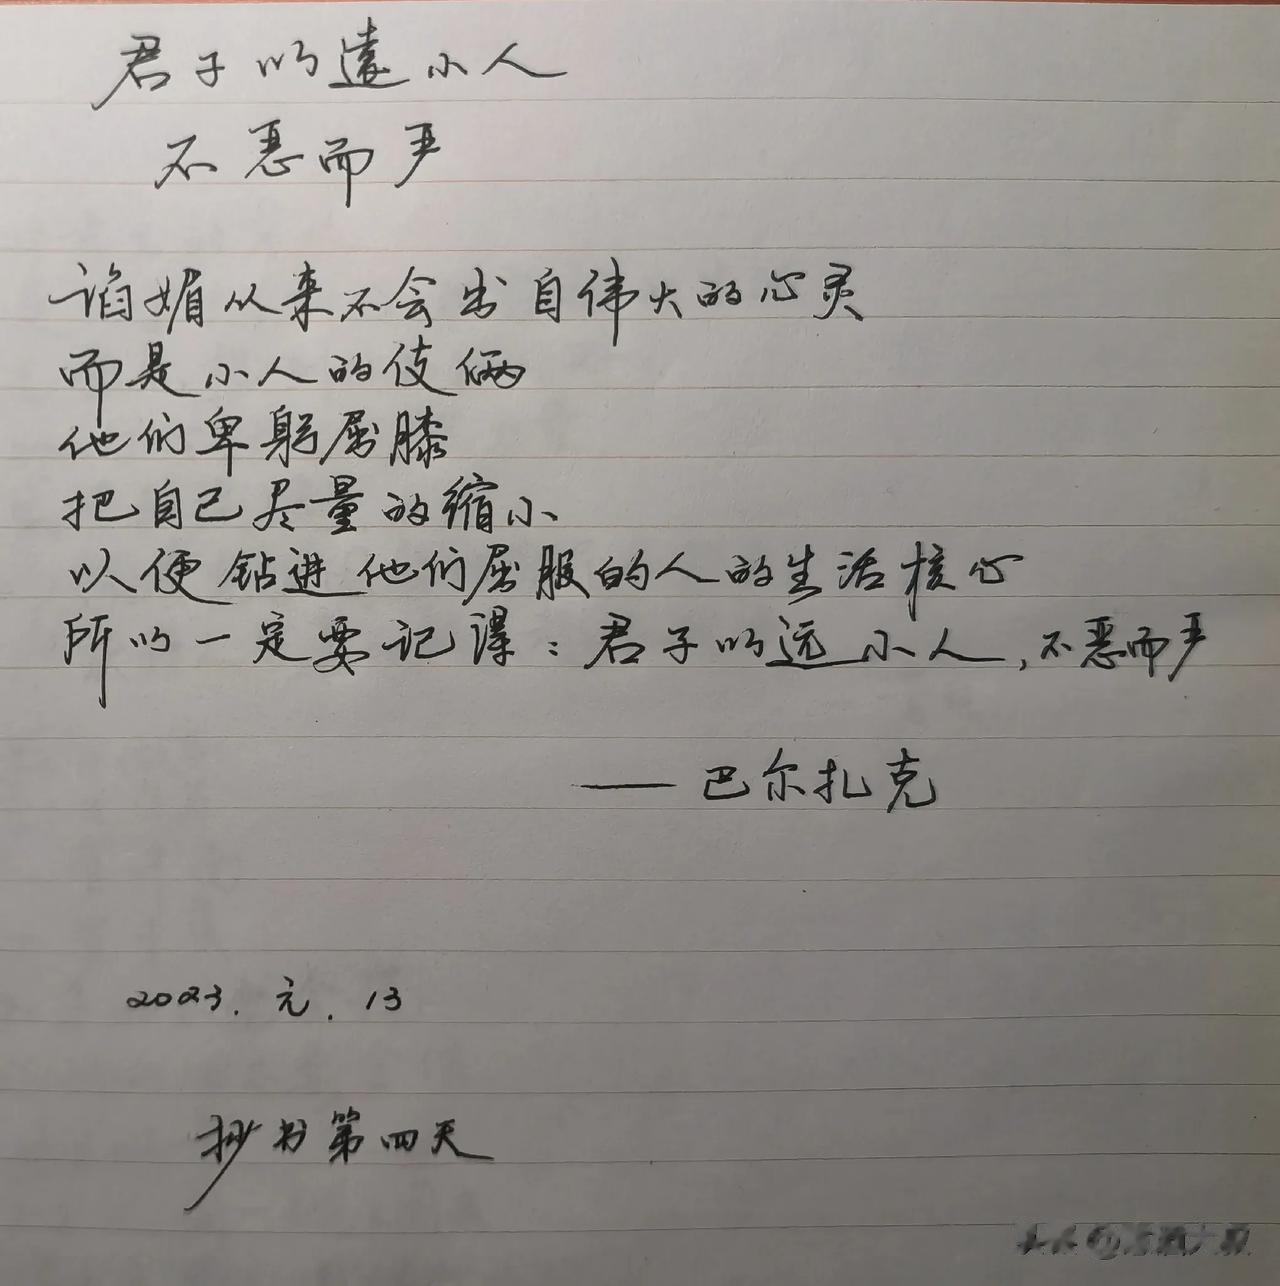 君子以遠小人
不恶而严
谄媚从来不会出自伟大的心灵
而是小人的伎俩
他们卑躬屈膝
把自己尽量的缩小
以便钻进他们屈服的人的生活核心
所以一定要记得：君子以远小人，不恶而严
——巴尔扎克
2023.元.13
抄书第四天